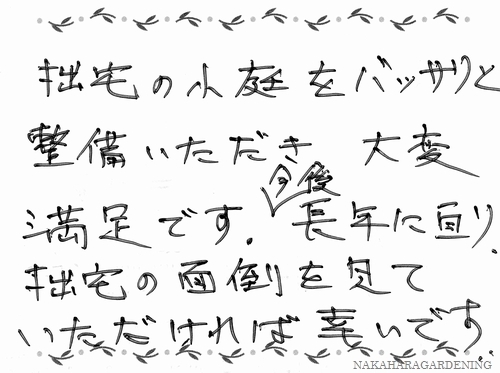 拙宅の小庭をバッサリと
整備いただき 大変
満足です。今後長年に亘り、
拙宅の面倒を見て
いただければ幸いです。
NAKAHARAGARDENING